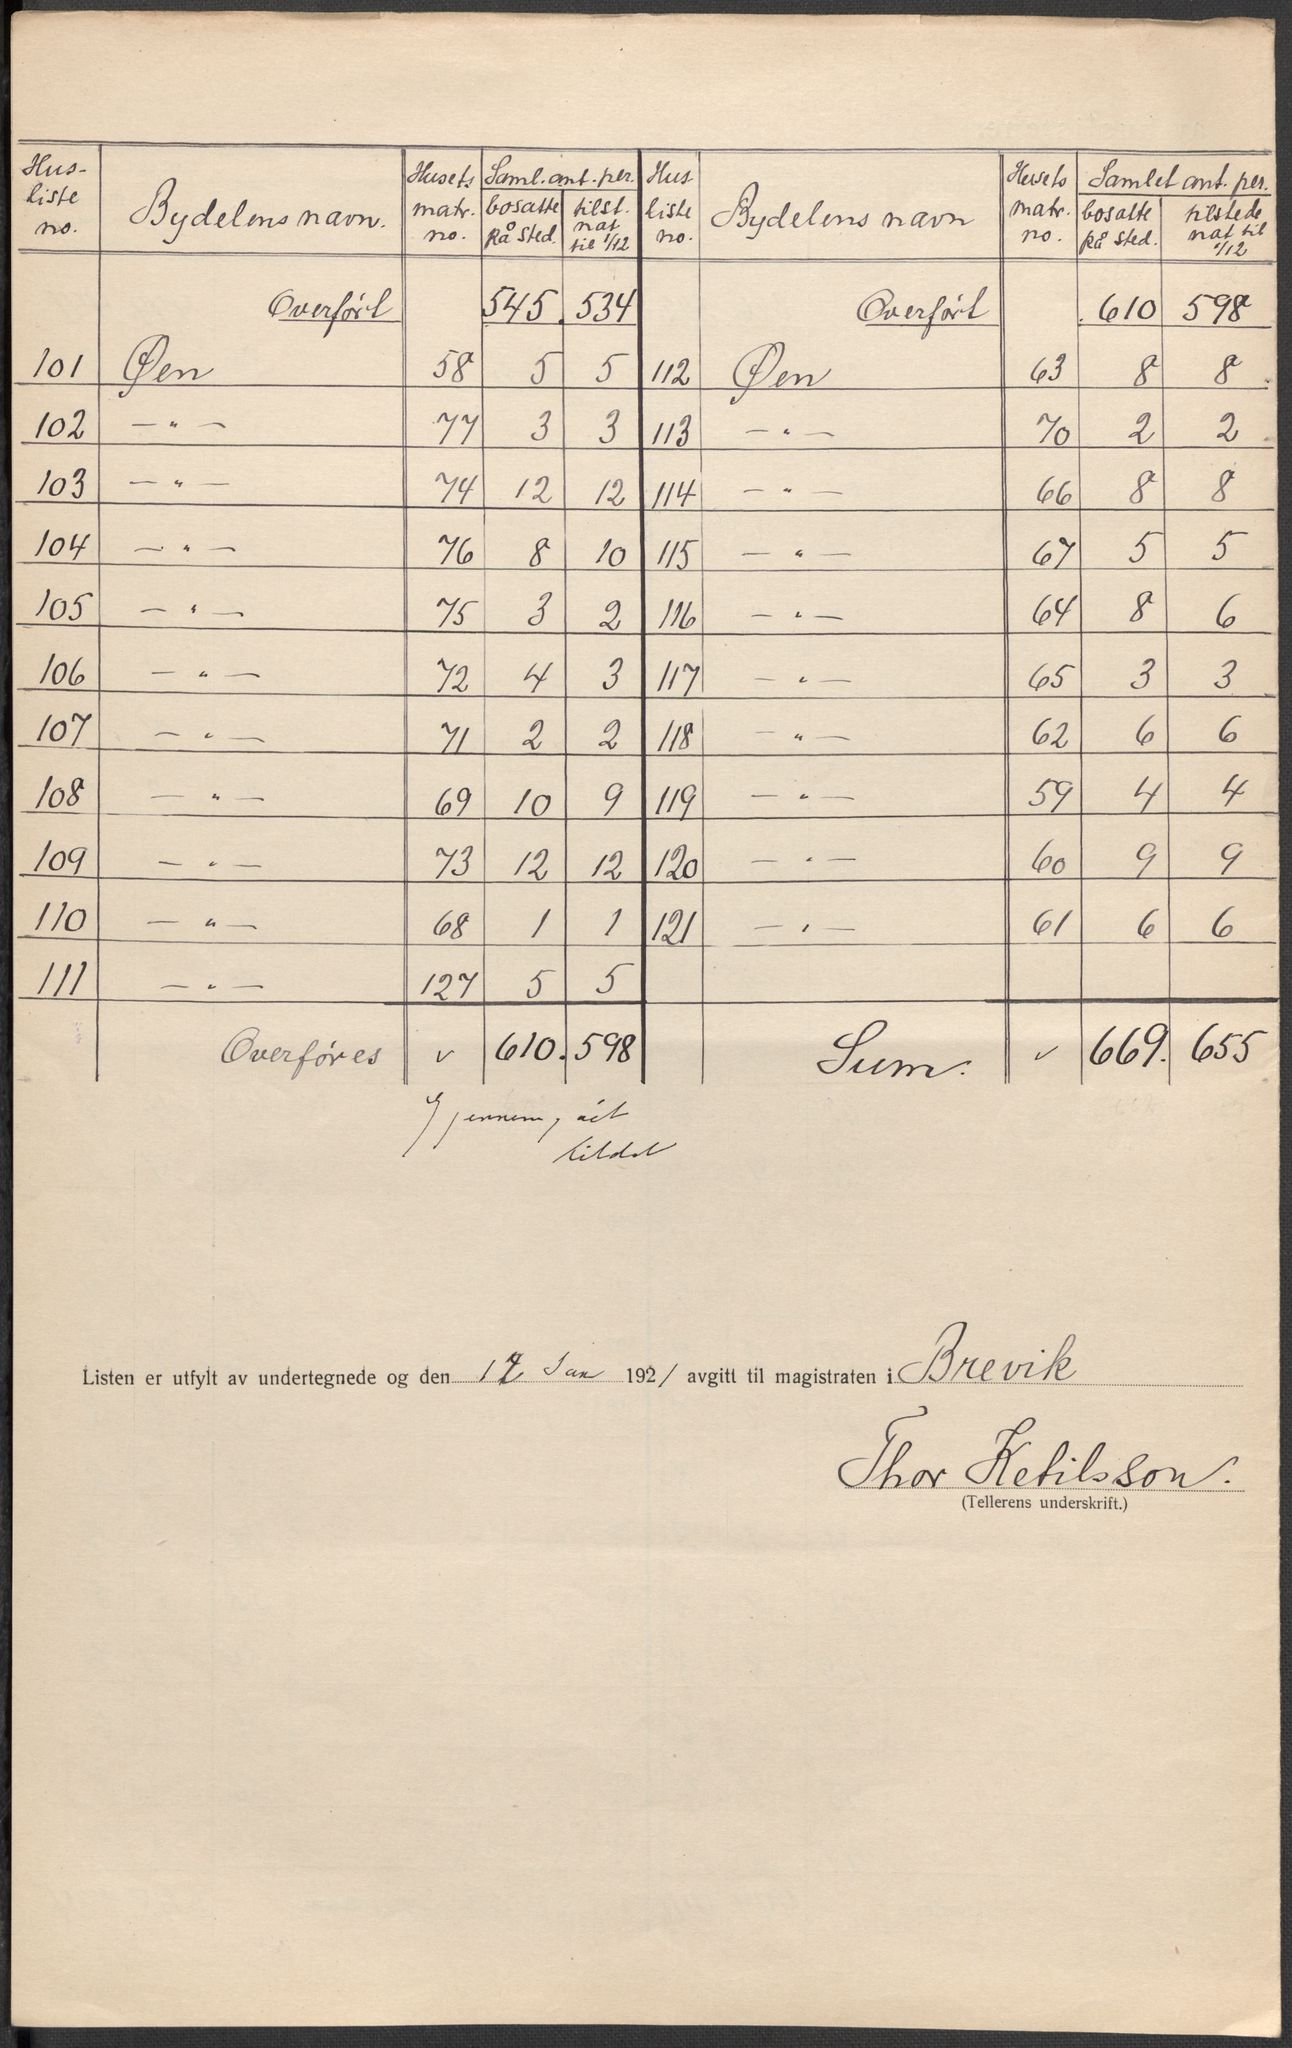 Hus- liste no. Bydelens navn. Husets matr. no. Saml. ant. per. bosatte på sted. tilst. nat til 1/12 Hus liste no. Bydelens navn Husets matr. no. Samlet ant. per. bosatte på sted. tilstede nat til 1/12
Overført 545. 534 Overført 610 598
101 Øen 58 5 5 112 Øen 63 8 8
102 — " — 77 3 3 113 — " — 70 2 2
103 — " — 74 12 12 114 — " — 66 8 8
104 — " — 76 8 10 115 — " — 67 5 5
105 — " — 75 3 2 116 — " — 64 8 6
106 — " — 72 4 3 117 — " — 65 3 3
107 — " — 71 2 2 118 — " — 62 6 6
108 — " — 69 10 9 119 — " — 59 4 4
109 — " — 73 12 12 120 — " — 60 9 9
110 — " — 68 1 1 121 — " — 61 6 6
111 — " — 127 5 5
Overføres v 610. 598 Sum. v 669. 655
Listen er utfylt av undertegnede og den Jan 1921 avgitt til magistraten i Brevik
Thor Ketilsson.
(Tellerens underskrift.)